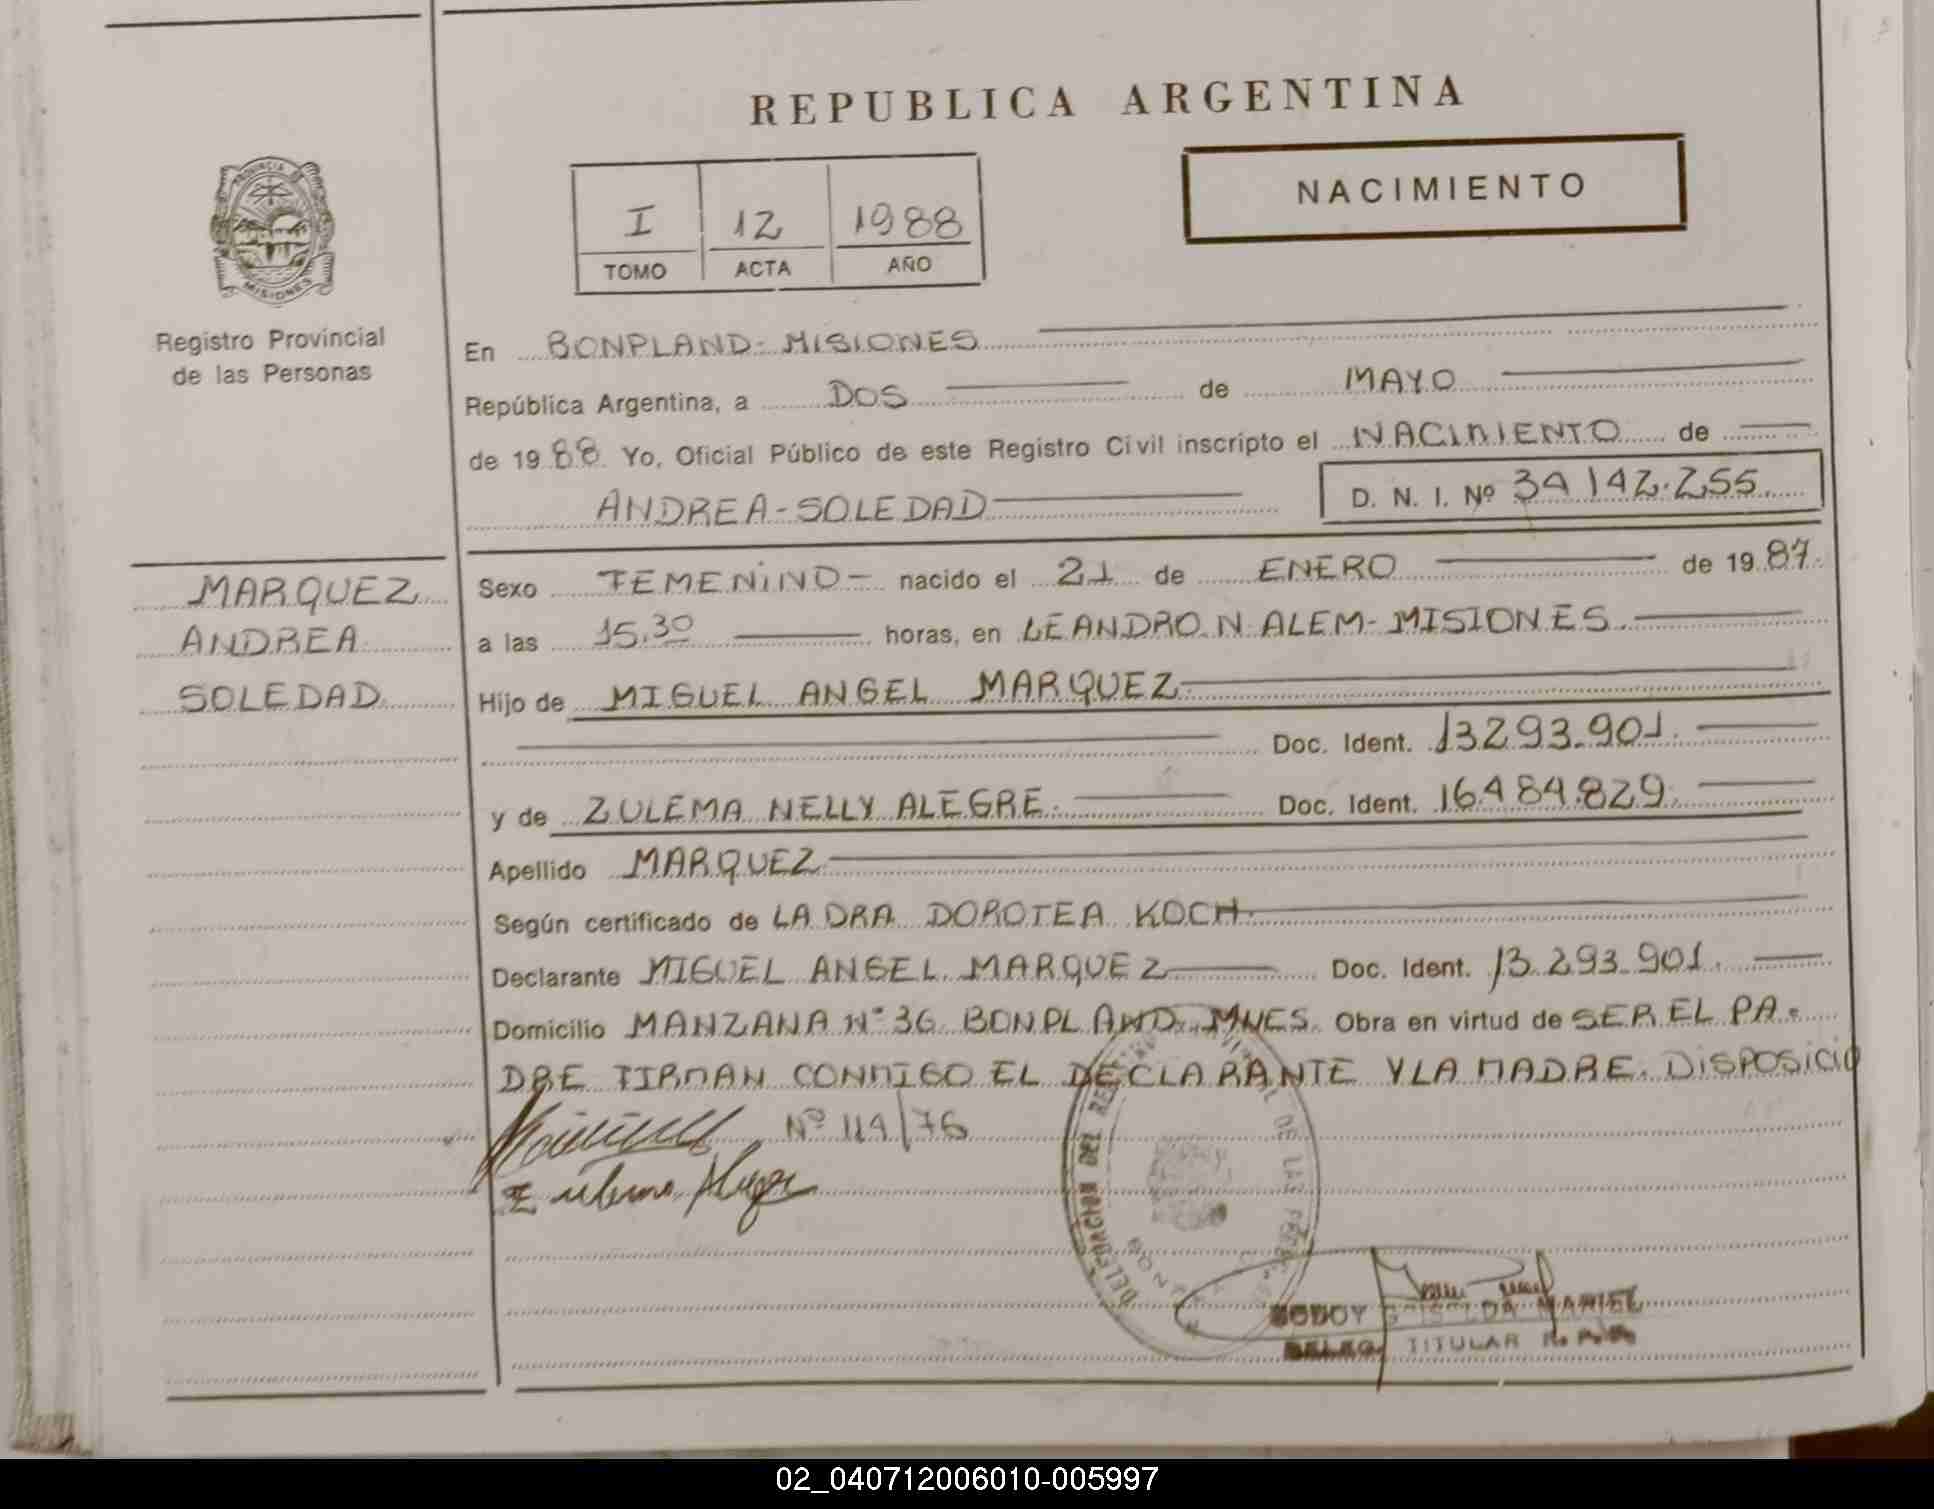 REPUBLICA ARGENTINA
NACIMIENTO
I 12 1988
TOMO ACTA AÑO
PROVINCIA DE
MISIONES
Registro Provincial
de las Personas
En BONPLAND-MISIONES
República Argentina, a DOS de MAYO
de 1988 Yo, Oficial Público de este Registro Civil inscripto el NACIMIENTO de
ANDREA-SOLEDAD D. N. I. Nº 34 142.255
MARQUEZ
ANDREA
SOLEDAD
Sexo FEMENINO- nacido el 21 de ENERO de 1987.
a las 15.30 horas, en LEANDRO N ALEM-MISIONES.
Hijo de MIGUEL ANGEL MARQUEZ
Doc. Ident. 13.293.901.
y de ZULEMA NELLY ALEGRE. Doc. Ident. 16.484.829.
Apellido MARQUEZ
Según certificado de LA DRA DOROTEA KOCH.
Declarante MIGUEL ANGEL MARQUEZ Doc. Ident. 13.293.901.
Domicilio MANZANA Nº 36 BONPLAND. MNES. Obra en virtud de SER EL PA-
DRE FIRMAN CONMIGO EL DECLARANTE Y LA MADRE. DISPOSICIO
Nº 114/76
DELEGACION DEL DE LAS
GODOY GRISELDA MARIEL
DELEG. TITULAR R.
02_040712006010-005997